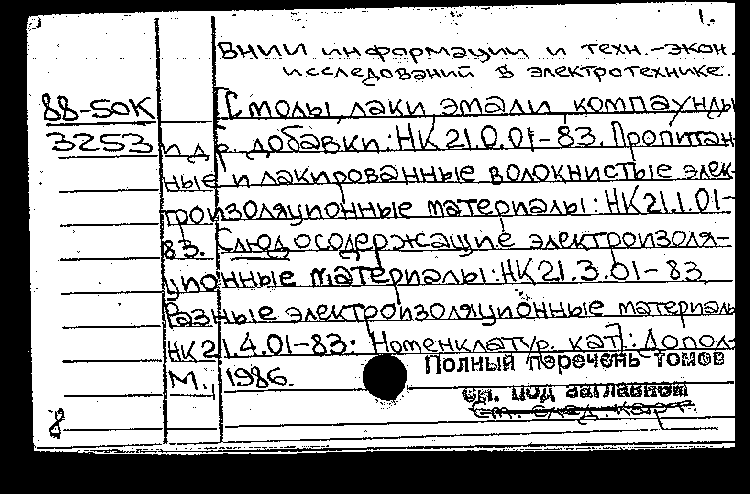 1.
ВНИИ информации и техн.-экон.
исследований в электротехнике.
88-50К
3253
[Смолы, лаки, эмали, компаунды
и др. добавки: НК 21.0.01-83. Пропитан-
ные и лакированные волокнистые элек-
троизоляционные материалы: НК 21.1.01-
83. Слюдосодержащие электроизоля-
ционные материалы: НК 21.3.01-83.
Разные электроизоляционные материалы
НК 21.4.01-83: Номенклатур. кат]: Допол-
М., 1986.
Полный перечень томов
см. под заглавием
См. след. карт.
8